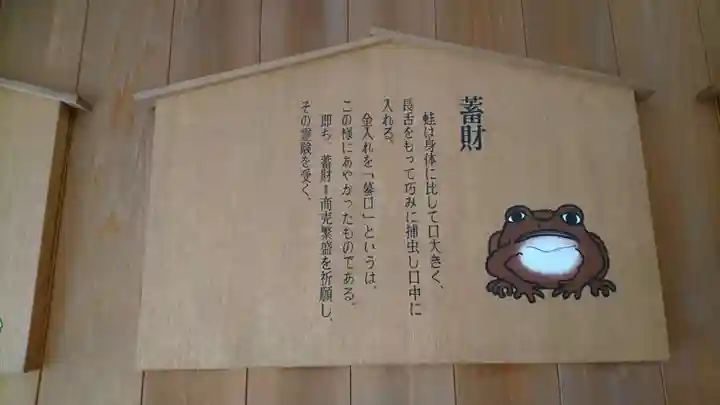 蓄財
蛙は身体に比して口大きく、
長舌をもって巧みに捕虫し口中に
入れる。
金入れを「蟇口」というは、
この様にあやかったものである。
即ち、蓄財＝商売繁盛を祈願し、
その霊験を受く、